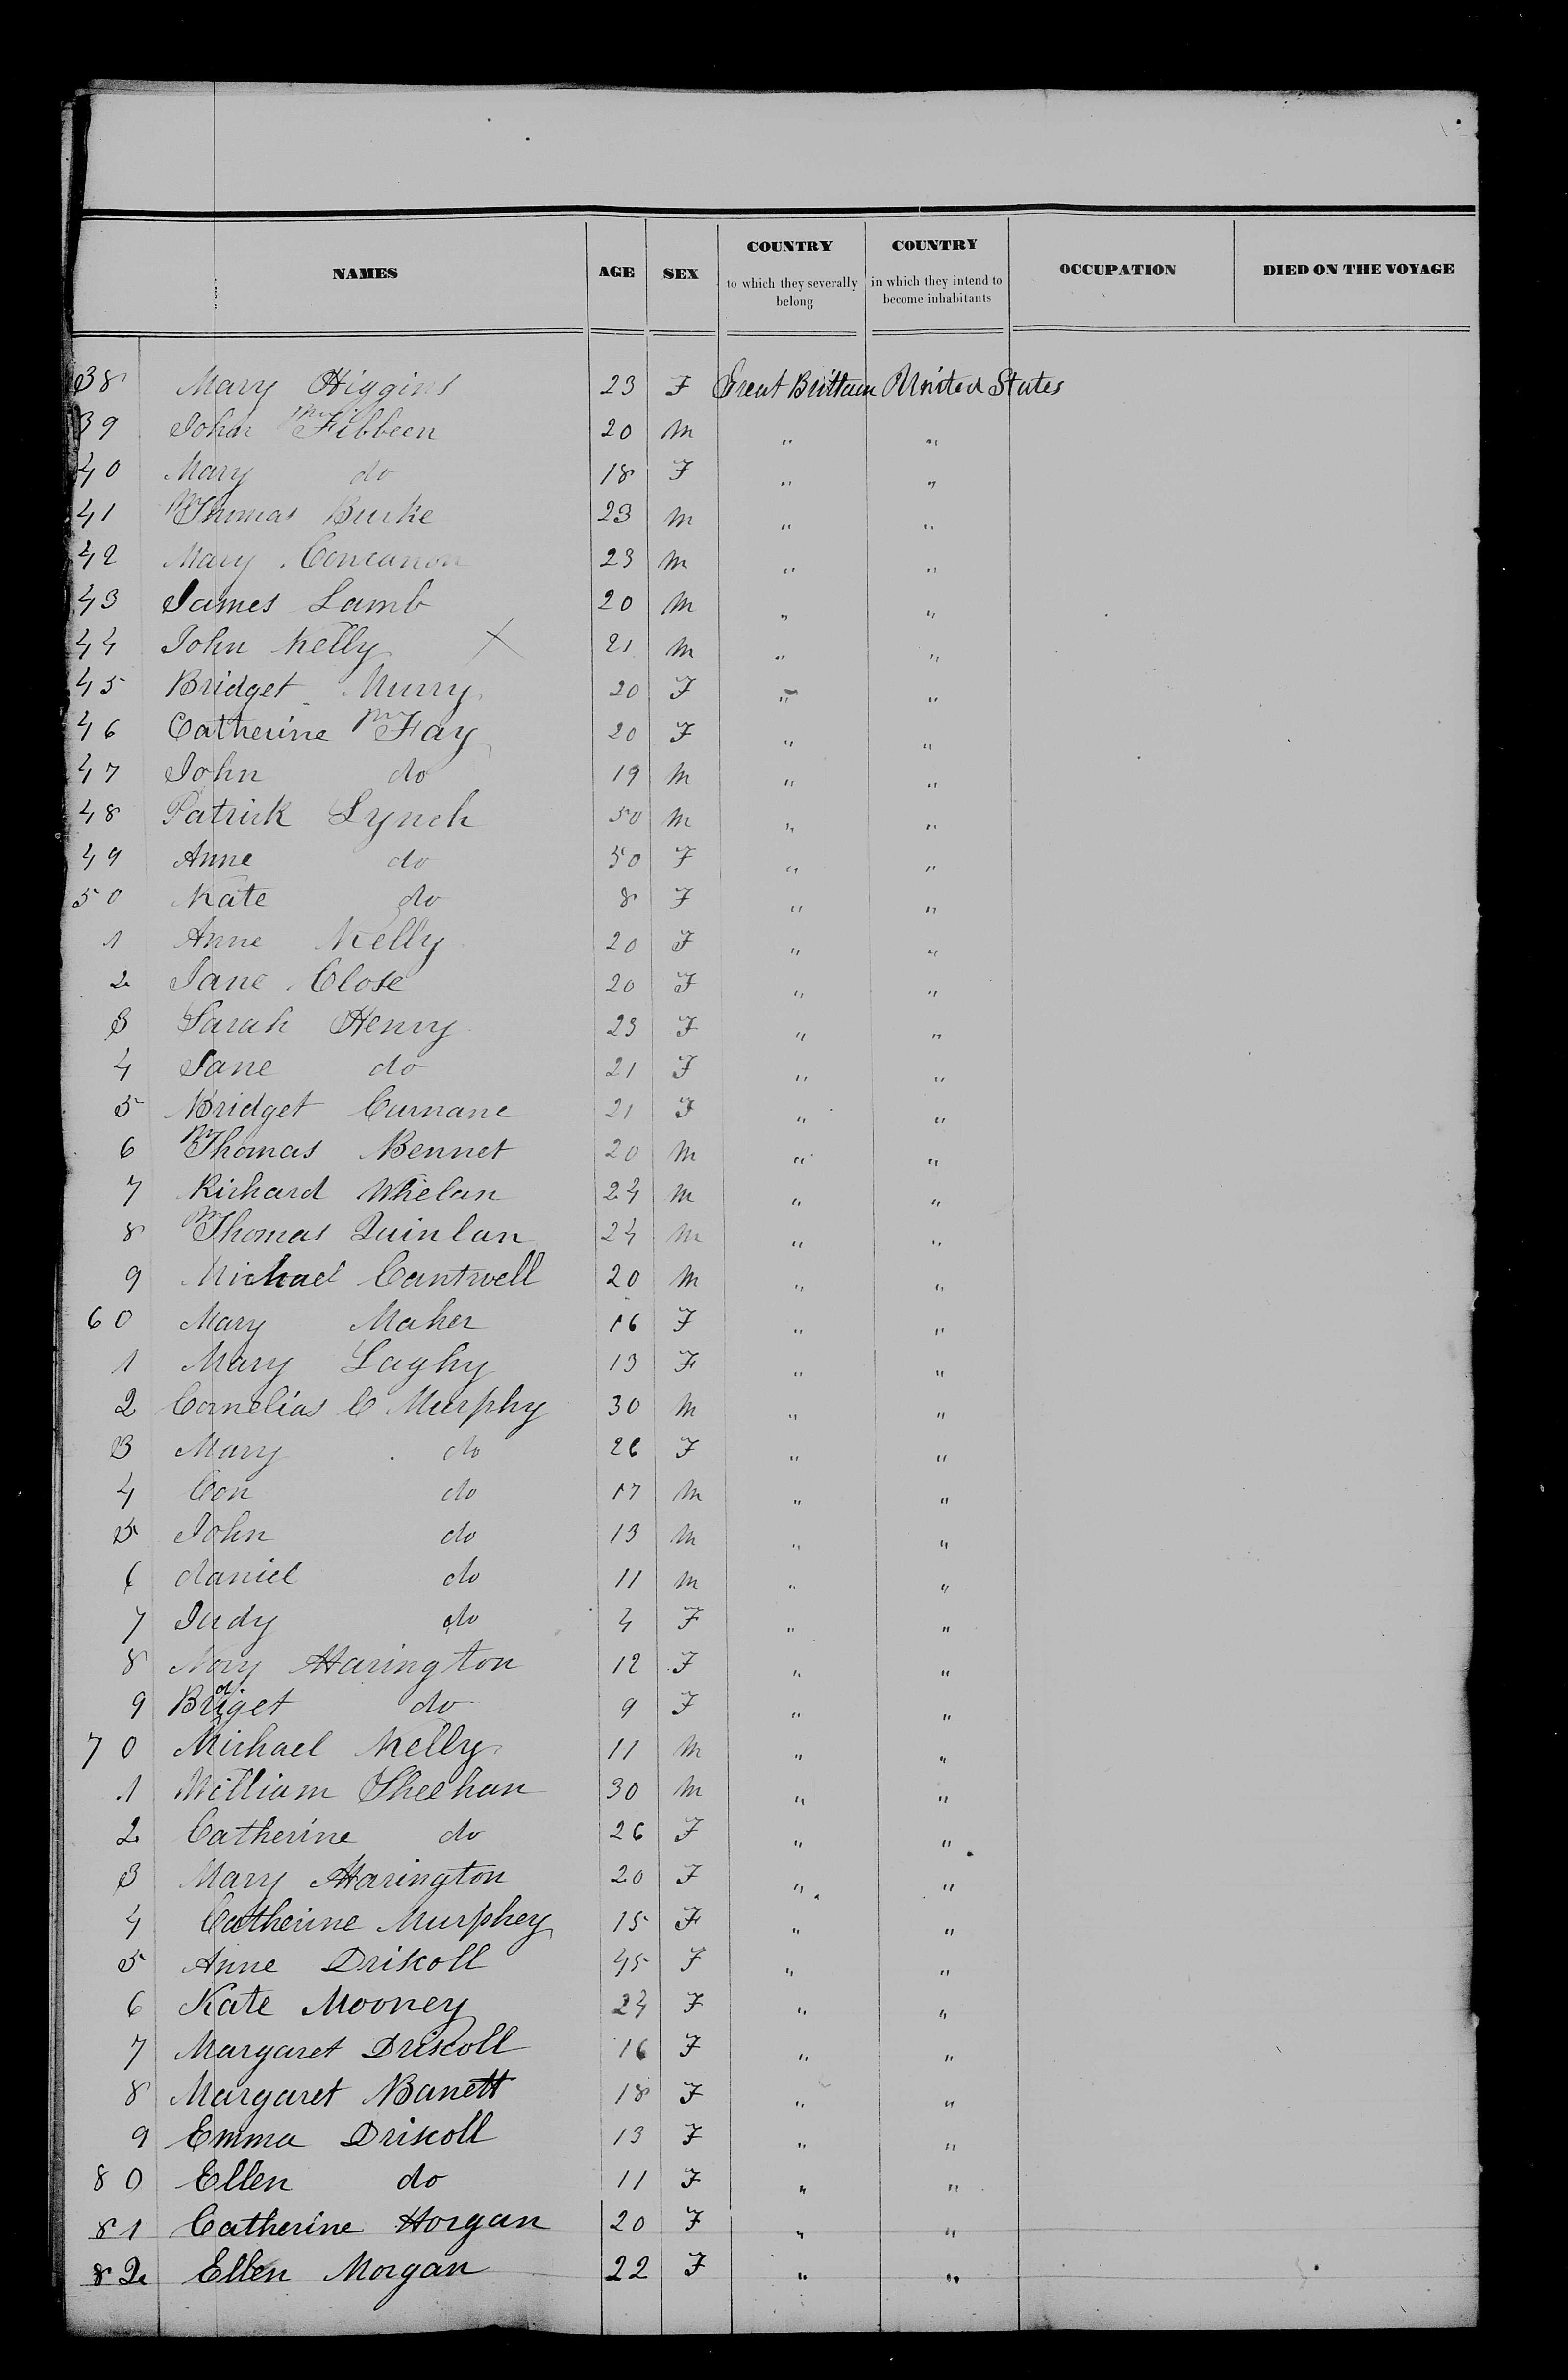 NAMES AGE SEX COUNTRY to which they severally belong COUNTRY in which they intend to become inhabitants OCCUPATION DIED ON THE VOYAGE
38 Mary Higgins 23 F Great Brittain United States
39 John McFibbeen 20 M " "
40 Mary do 18 F " "
41 Thomas Burke 23 M " "
42 Mary Concanon 23 M " "
43 James Lamb 20 M " "
44 John Kelly X 21 M " "
45 Bridget Murry 20 F " "
46 Catherine McFay 20 F " "
47 John do 19 M " "
48 Patrick Lynch 50 M " "
49 Anne do 50 F " "
50 Kate do 8 F " "
1 Anne Kelly 20 F " "
2 Jane Close 20 F " "
3 Sarah Henry 23 F " "
4 Jane do 21 F " "
5 Bridget Curnane 21 F " "
6 Thomas Bennet 20 M " "
7 Richard Whelan 24 M " "
8 Thomas Quinlan 24 M " "
9 Michael Cantwell 20 M " "
60 Mary Maher 16 F " "
1 Mary Laghy 13 F " "
2 Cornelias C Murphy 30 M " "
3 Mary do 26 F " "
4 Con do 17 M " "
5 John do 13 M " "
6 daniel do 11 M " "
7 Judy do 4 F " "
8 Nory Harington 12 F " "
9 Bridget do 9 F " "
70 Michael Kelly 11 M " "
1 William Sheehan 30 M " "
2 Catherine do 26 F " "
3 Mary Harington 20 F " "
4 Catherine Murphey 15 F " "
5 Anne Driscoll 45 F " "
6 Kate Mooney 24 F " "
7 Margaret Driscoll 16 F " "
8 Margaret Banett 18 F " "
9 Emma Driscoll 13 F " "
80 Ellen do 11 F " "
81 Catherine Horgan 20 F " "
82 Ellen Morgan 22 F " "